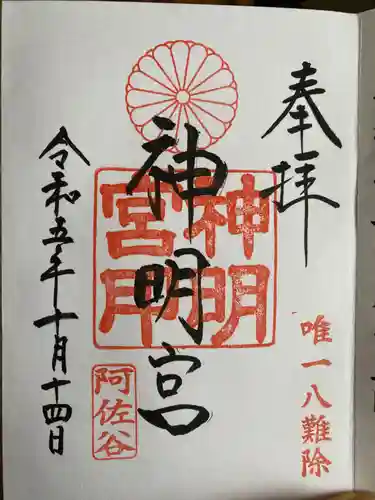 奉拝
唯一八難除
神明宮
神明
宮印
阿佐谷
令和五年十月十四日